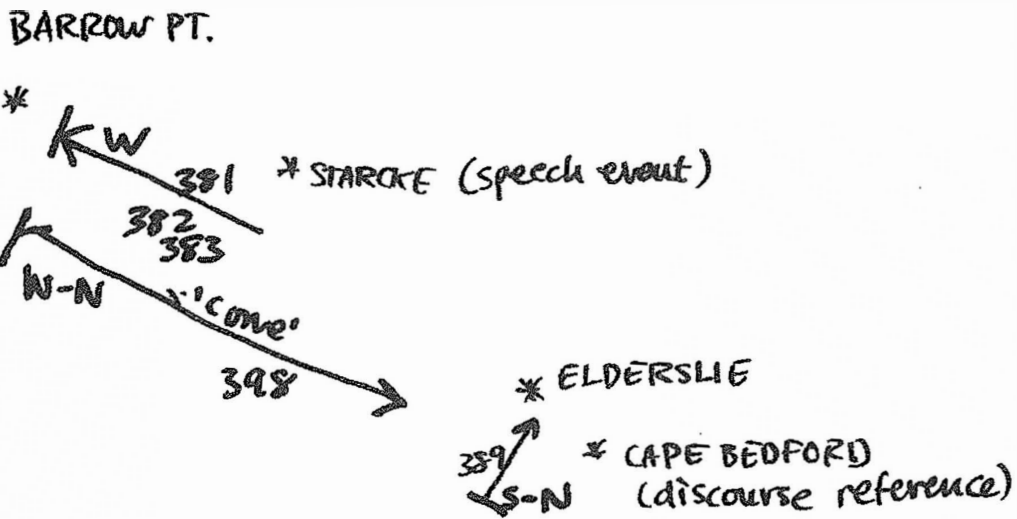 BARROW PT.
*
W
381
* STARCKE (speech event)
382
383
W-N
'come'
398
* ELDERSLIE
389
* CAPE BEDFORD
S-N
(discourse reference)